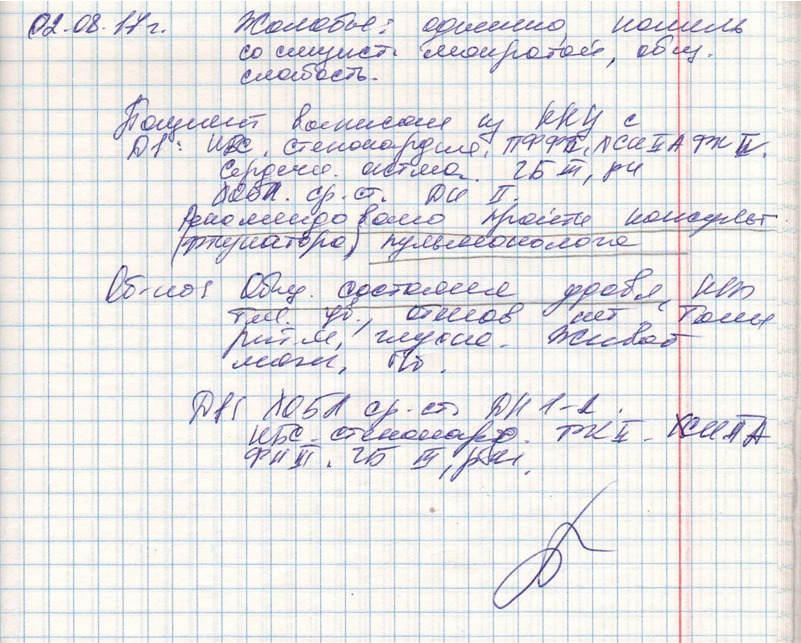 02.08.17г. Жалобы: одышка, кашель
со слизист. мокротой, общ.
слабость.
Пациент выписан из ККЦ с
DS: ИБС, стенокардия, ФК II, ХСН II А ФК II.
Сердечн. астма. ГБ III, р4
ХОБЛ. ср. ст. ДН II.
Рекомендовано пройти консульт
пульмонолога
Об-но: Общ. состояние удовл,
ув., отеков нет. Тоны
ритм, глухие. Живот
мягк, б/б.
DS: ХОБЛ ср. ст. ДН 1-2.
ИБС. стенокард. ФК II. ХСН II А
ФК III. ГБ III, р4.